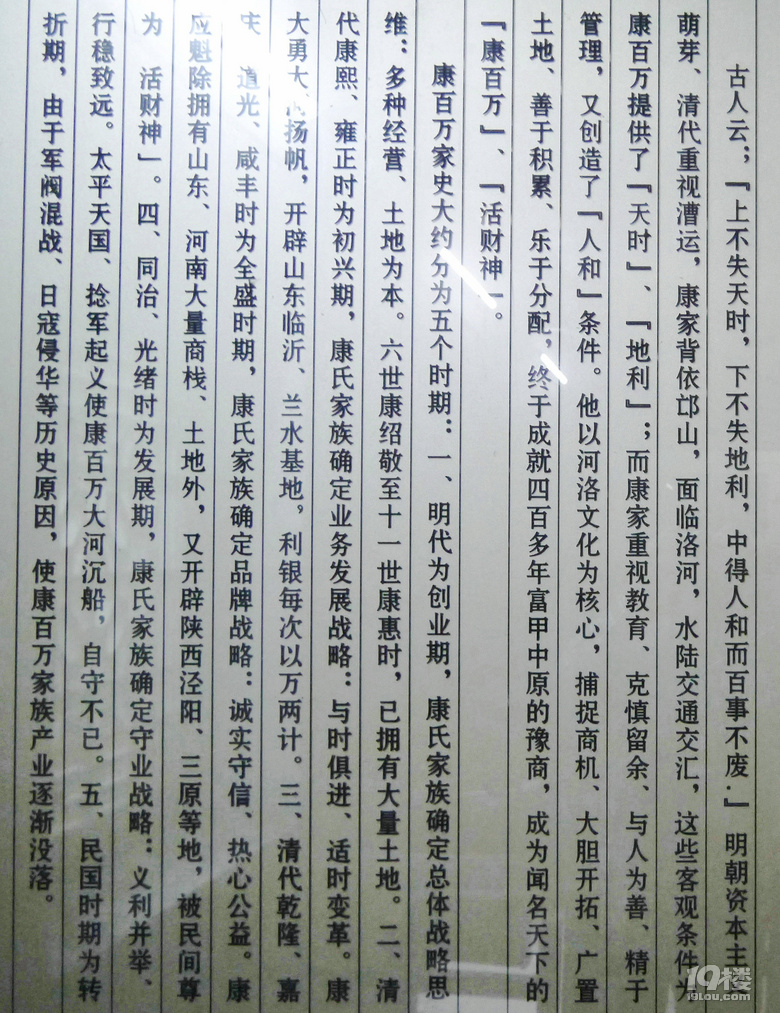 古人云；「上不失天时，下不失地利，中得人和而百事不废.」明朝资本主
萌芽、清代重视漕运，康家背依邙山，面临洛河，水陆交通交汇，这些客观条件为
康百万提供了「天时」、「地利」；而康家重视教育、克慎留余、与人为善、精于
管理，又创造了「人和」条件。他以河洛文化为核心，捕捉商机、大胆开拓、广置
土地、善于积累、乐于分配，终于成就四百多年富甲中原的豫商，成为闻名天下的
「康百万」、「活财神」。
康百万家史大约分为五个时期：一、明代为创业期，康氏家族确定总体战略思
维：多种经营、土地为本。六世康绍敬至十一世康惠时，已拥有大量土地。二、清
代康熙、雍正时为初兴期，康氏家族确定业务发展战略：与时俱进、适时变革。康
大勇大 扬帆，开辟山东临沂、兰水基地。利银每次以万两计。三、清代乾隆、嘉
道光、咸丰时为全盛时期，康氏家族确定品牌战略：诚实守信、热心公益。康
应魁除拥有山东、河南大量商栈、土地外，又开辟陕西泾阳、三原等地，被民间尊
为 活财神」。四、同治、光绪时为发展期，康氏家族确定守业战略：义利并举、
行稳致远。太平天国、捻军起义使康百万大河沉船，自守不已。五、民国时期为转
折期，由于军阀混战、日寇侵华等历史原因，使康百万家族产业逐渐没落。
19楼
19lou.com